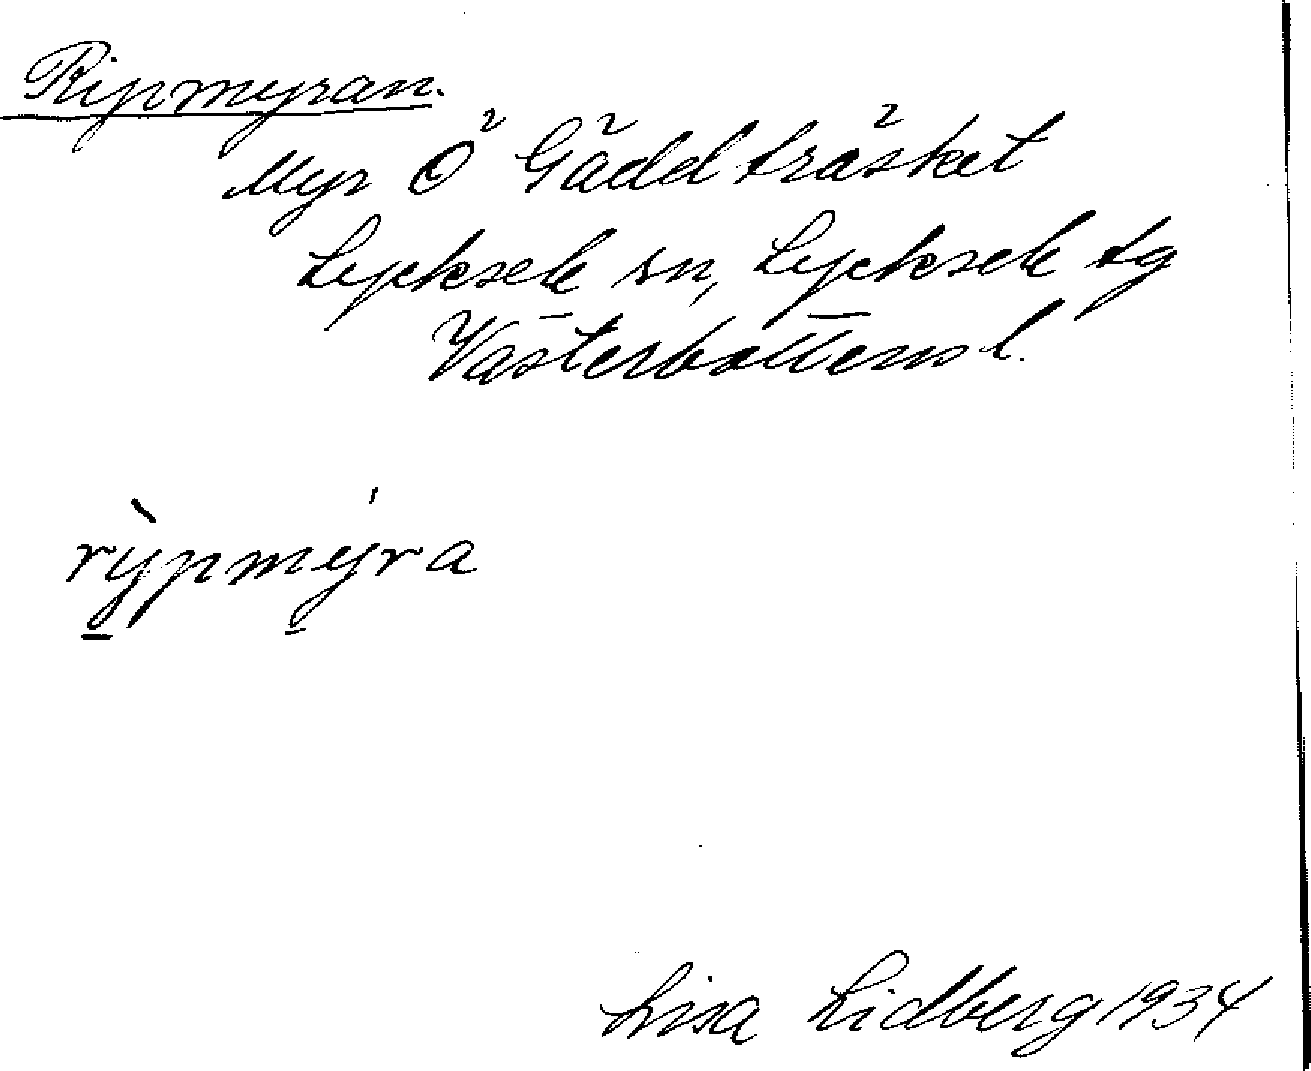 Ripmyran.
Myr Ö Gäddträsket
Lycksele sn, Lycksele tg
Västerbottens l.
rỳpmýra
Lisa Lidberg 1934